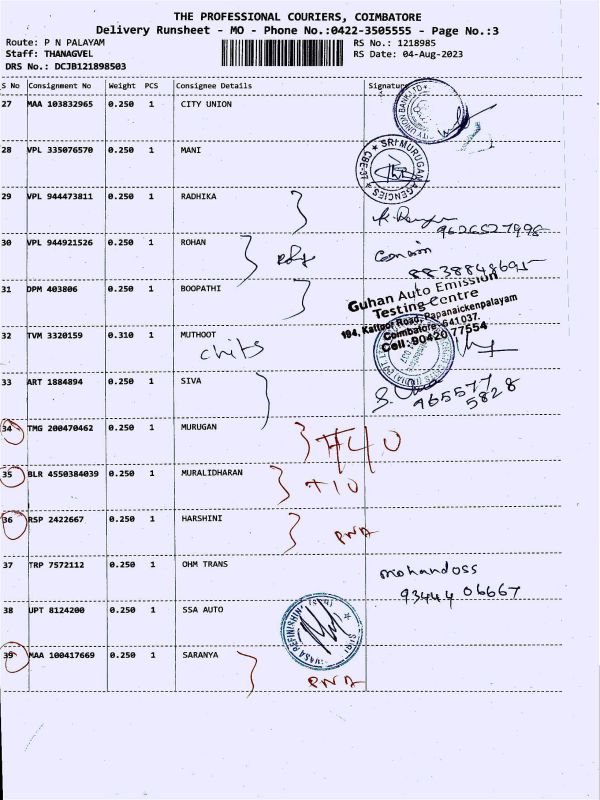 THE PROFESSIONAL COURIERS, COIMBATORE
Delivery Runsheet - MO - Phone No.:0422-3505555 - Page No.:3
Route: P N PALAYAM
Staff: THANAGVEL
DRS No.: DCJB121898503
RS No.: 1218985
RS Date: 04-Aug-2023
S No Consignment No Weight PCS Consignee Details Signature
27 MAA 103832965 0.250 1 CITY UNION
CITY UNION BANK LTD
28 VPL 335076570 0.250 1 MANI
SRI MURUGAN AGENCIES
CBE-37
29 VPL 944473811 0.250 1 RADHIKA
9626527998
30 VPL 944921526 0.250 1 ROHAN
8838848695
31 DPM 403806 0.250 1 BOOPATHI
Guhan Auto Emission
Testing Centre
194, Kattoor Road, Papanaickenpalayam
Coimbatore - 641 037.
Cell : 90420 77554
32 TVM 3320159 0.310 1 MUTHOOT
chits
33 ART 1884894 0.250 1 SIVA
965577
5828
34 TMG 200470462 0.250 1 MURUGAN
35 BLR 4550384039 0.250 1 MURALIDHARAN
36 RSP 2422667 0.250 1 HARSHINI
PNA
37 TRP 7572112 0.250 1 OHM TRANS
mohandoss
93444 06667
38 UPT 8124200 0.250 1 SSA AUTO
39 MAA 100417669 0.250 1 SARANYA
PNA